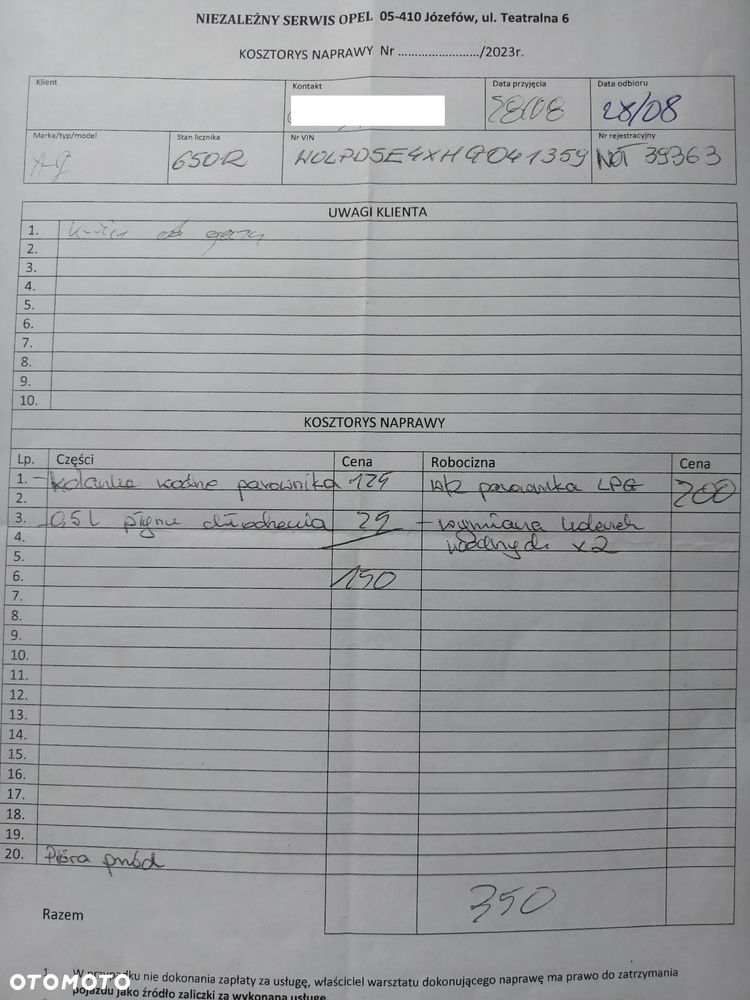 NIEZALEŻNY SERWIS OPEL 05-410 Józefów, ul. Teatralna 6
KOSZTORYS NAPRAWY Nr ......................../2023r.
Klient
Kontakt
Data przyjęcia
Data odbioru
28/08
28/08
Marka/typ/model
Stan licznika
Nr VIN
Nr rejestracyjny
WOLPD5E4XHG041359
WOT 39363
UWAGI KLIENTA
1.
2.
3.
4.
5.
6.
7.
8.
9.
10.
KOSZTORYS NAPRAWY
Lp. Części Cena Robocizna Cena
1. - kolanko wodne parownika 124 parownika LPG 200
2.
3. - 0,5 L płynu chłodzenia 29 - wymiana kolanek
4. wodnych x2
5.
6. 150
7.
8.
9.
10.
11.
12.
13.
14.
15.
16.
17.
18.
19.
20. Pióra przód
Razem 350
1. W przypadku nie dokonania zapłaty za usługę, właściciel warsztatu dokonującego naprawę ma prawo do zatrzymania
pojazdu jako źródło zaliczki za wykonaną usługę
OTOMOTO